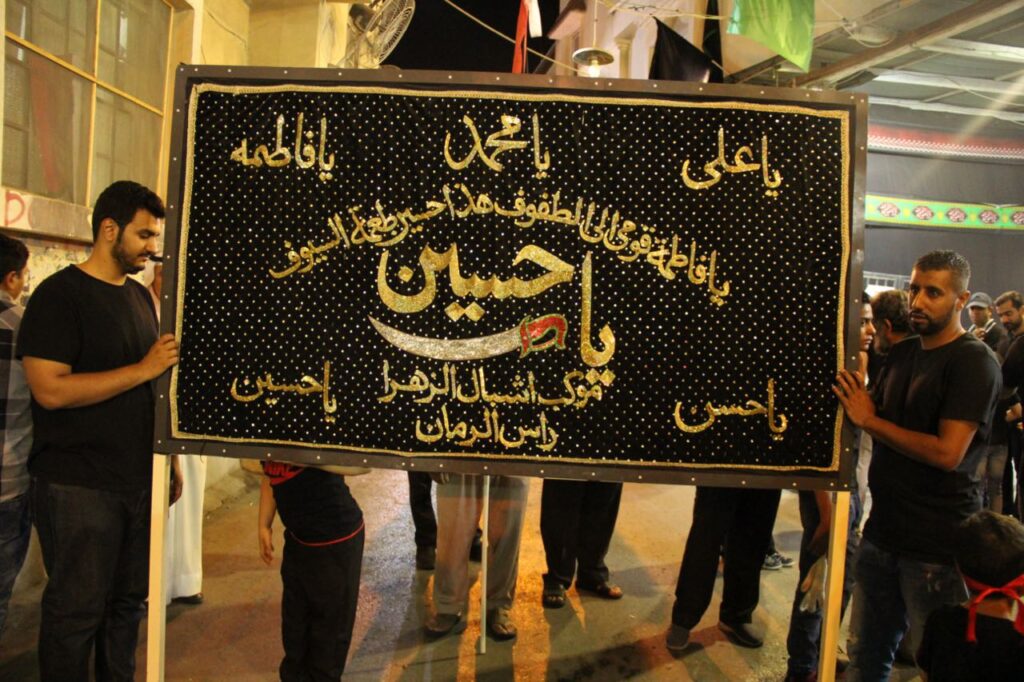 يا علي
يا محمد
يا فاطمه
يا فاطمة قومي الى الطفوف هذا حسين طعمة السيوف
يا حسين
يا حسن
يا حسين
موكب اشبال الزهرا
راس الرمان